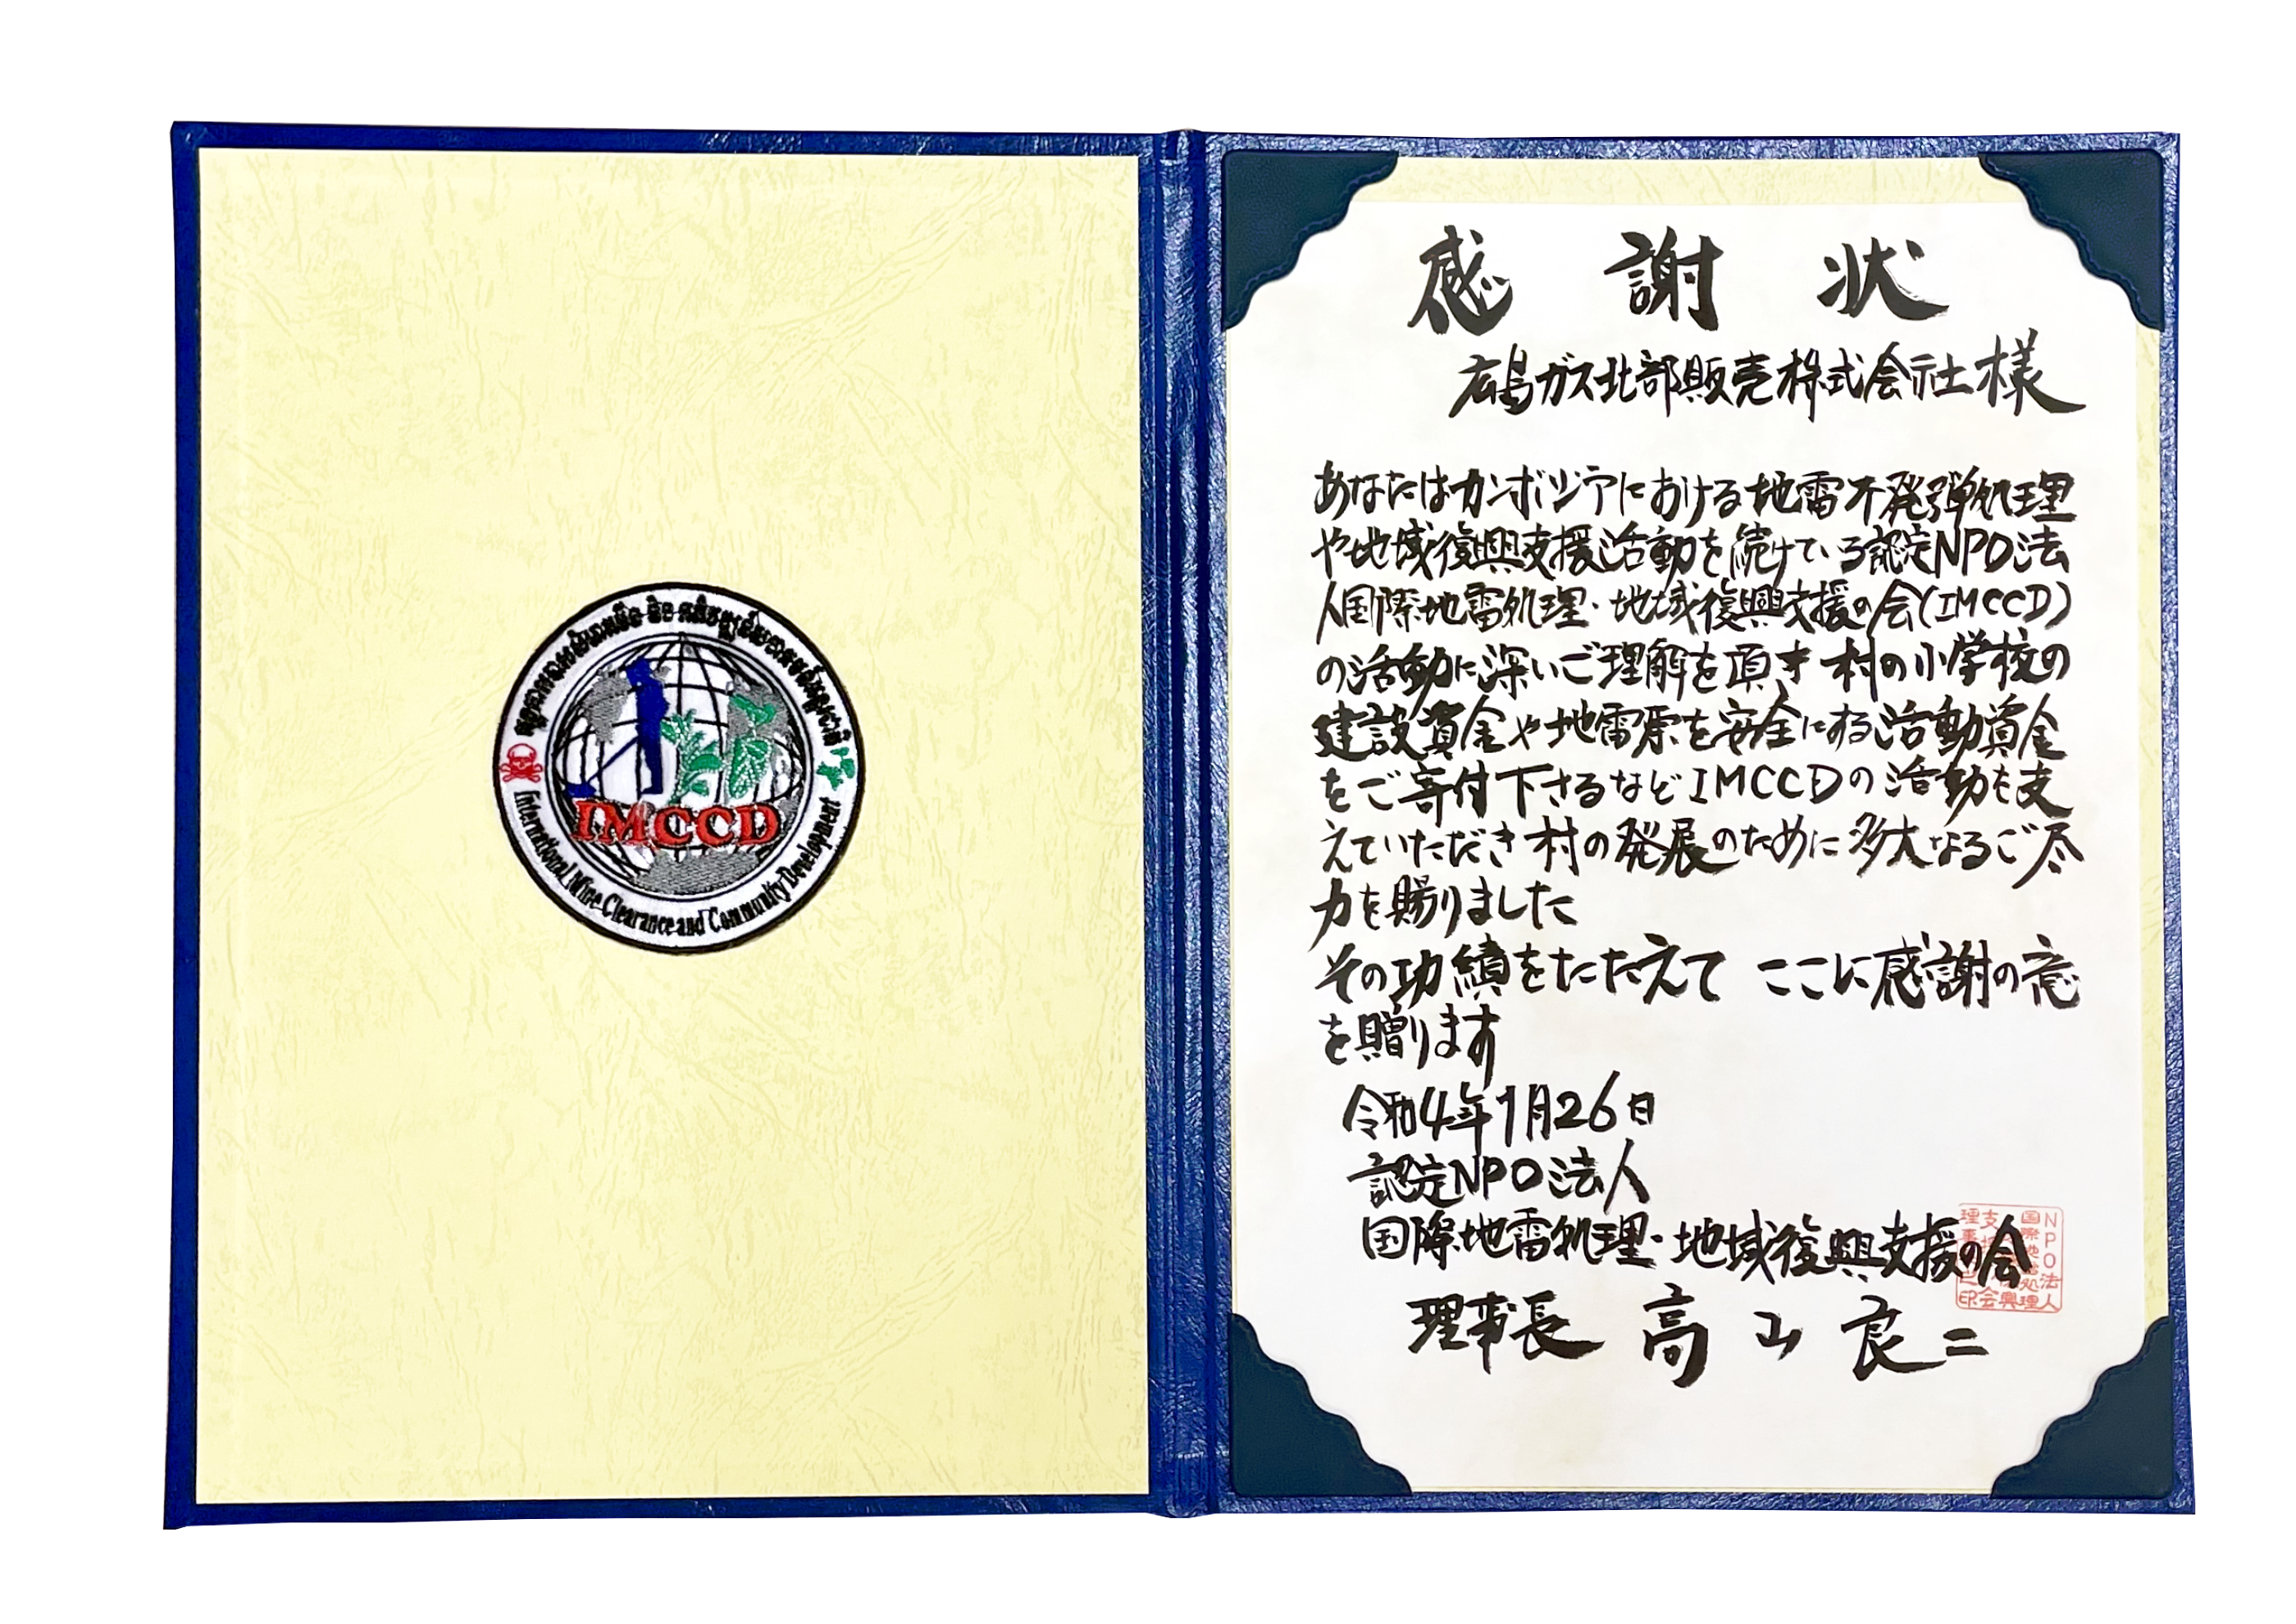 IMCCD
International Mine Clearance and Community Development
感謝状
広島ガス北部販売株式会社様
あなたはカンボジアにおける地雷不発弾処理
や地域復興支援活動を続けている認定NPO法
人国際地雷処理・地域復興支援の会(IMCCD)
の活動に深いご理解を頂き 村の小学校の
建設資金や地雷原を安全にする活動資金
をご寄付下さるなどIMCCDの活動を支
えていただき村の発展のために多大なるご尽
力を賜りました
その功績をたたえて ここに感謝の意
を贈ります
令和4年1月26日
認定NPO法人
国際地雷処理・地域復興支援の会
理事長 高山良二
NPO法人
国際地雷処理